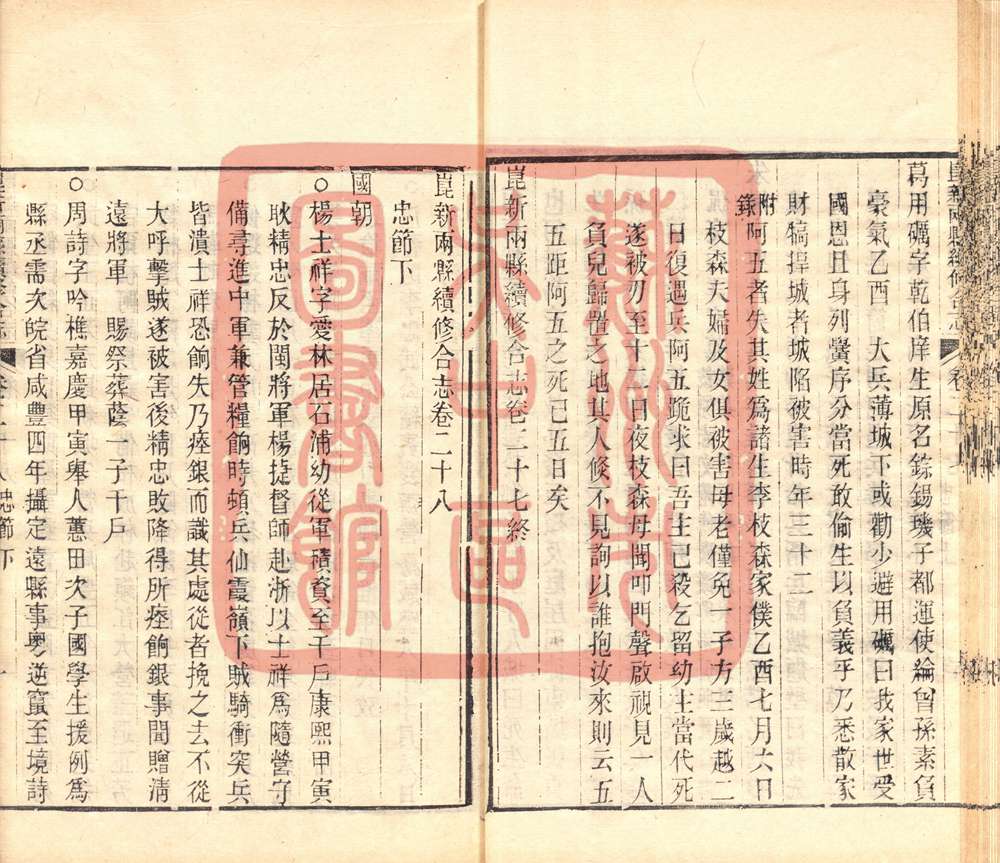 葛用礪字乾伯庠生原名錫璣子都運使綸曾孫素負
豪氣乙酉　大兵薄城下或勸少避用礪曰我家世受
國恩且身列黌序分當死敢偷生以負義乎乃悉散家
財犒捍城者城陷被害時年三十二
附錄阿五者失其姓爲諸生李枝森家僕乙酉七月六日
枝森夫婦及女俱被害母老僅免一子方三歲越二
日復遇兵阿五跪求曰吾主已殺乞留幼主當代死
遂被刃至十二日夜枝森母聞叩門聲啟視見一人
負兒歸置之地其人倐不見詢以誰抱汝來則云五
五距阿五之死已五日矣
崑新兩縣續修合志卷二十七終
崑新兩縣續修合志卷二十八
忠節下
國朝
○楊士祥字愛林居石浦幼從軍積資至千戶康熙甲寅
耿精忠反於閩將軍楊捷督師赴浙以士祥爲隨營守
備尋進中軍兼管糧餉時頓兵仙霞嶺下賊騎衝突兵
皆潰士祥恐餉失乃瘞銀而識其處從者挽之去不從
大呼擊賊遂被害後精忠敗降得所瘞餉銀事聞贈清
遠將軍　賜祭葬蔭一子千戶
○周詩字吟樵嘉慶甲寅舉人蕙田次子國學生援例爲
縣丞需次皖省咸豐四年攝定遠縣事粵逆竄至境詩
忠節下